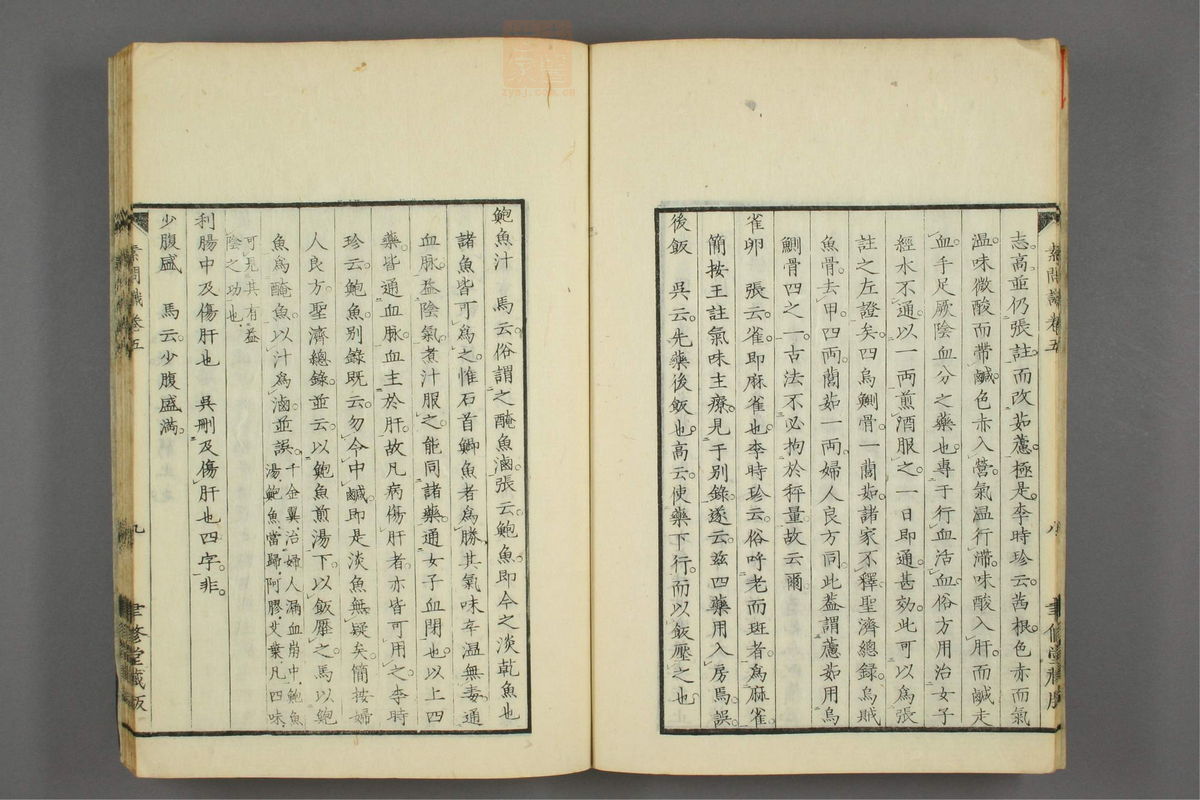 志高並仍張註而改茹藘極是李時珍云茜根色赤而氣
温味微酸而帶鹹色赤入營氣温行滯味酸入肝而鹹走
血手足厥陰血分之藥也專于行血活血俗方用治女子
經水不通以一兩煎酒服之一日即通甚効此可以爲張
註之左證矣四烏鰂骨一藺茹諸家不釋聖濟總錄烏賊
魚骨去甲四兩藺茹一兩婦人良方同此蓋謂藘茹用烏
鰂骨四之一古法不必拘於秤量故云爾
雀卵　張云雀即麻雀也李時珍云俗呼老而斑者爲麻雀
簡按王註氣味主療見于別錄遂云兹四藥用入房焉誤
後飯　吳云先藥後飯也高云使藥下行而以飯壓之也
素問識卷五
八
聿修堂藏版
鮑魚汁　馬云俗謂之醃魚滷張云鮑魚即今之淡乾魚也
諸魚皆可爲之惟石首鯽魚者爲勝其氣味辛温無毒通
血脉益陰氣煮汁服之能同諸藥通女子血閉也以上四
藥皆通血脉血主於肝故凡病傷肝者亦皆可用之李時
珍云鮑魚別錄既云勿令中鹹即是淡魚無疑矣簡按婦
人良方聖濟總錄並云以鮑魚煎湯下以飯壓之馬以鮑
魚爲醃魚以汁爲滷並誤千金翼治婦人漏血崩中鮑魚
湯鮑魚當歸阿膠艾葉凡四味
可見其有益
陰之功也
利腸中及傷肝也　吳刪及傷肝也四字非
少腹盛　馬云少腹盛滿
素問識卷五
九
聿修堂藏版